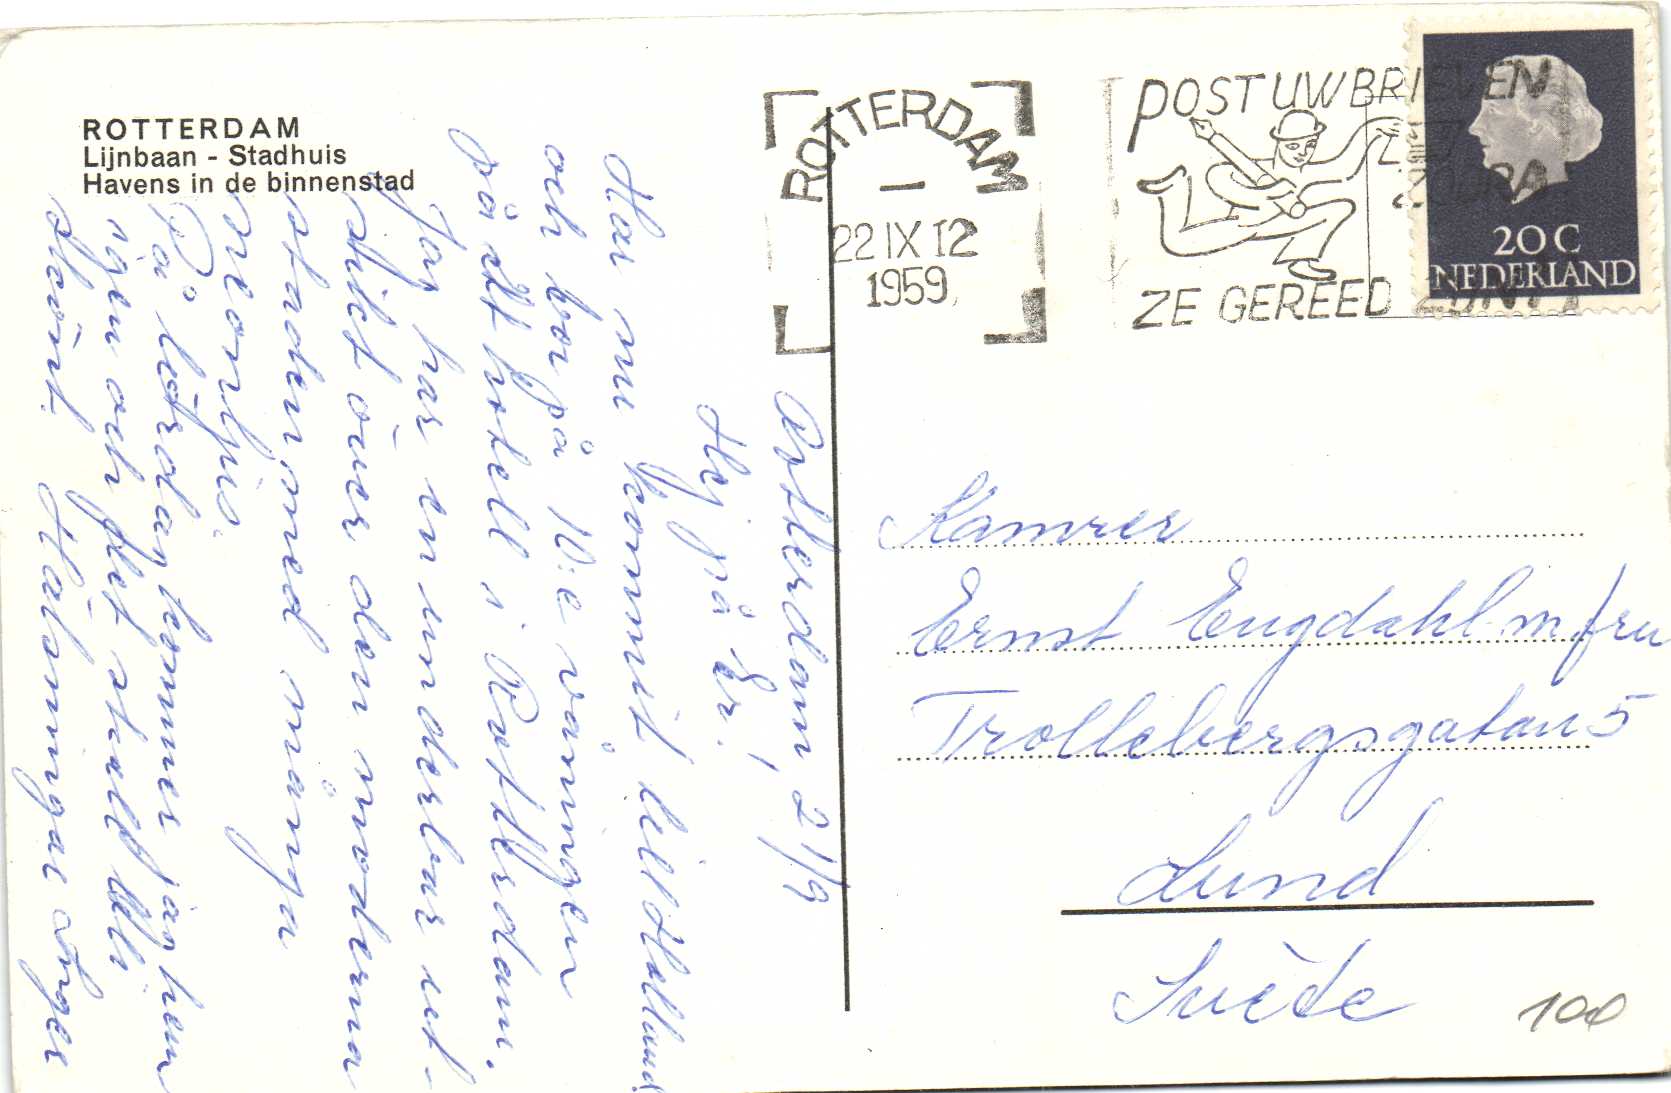 ROTTERDAM
Lijnbaan - Stadhuis
Havens in de binnenstad
ROTTERDAM
22 IX 12
1959
POST UW BRIEVEN
ZODRA
ZE GEREED ZIJN
20 C
NEDERLAND
Rotterdam, 21/9
Hej på Er!
Har nu kommit till Holland
och bor på 10:e våningen
på ett hotell i Rotterdam.
Jag har en underbar ut-
sikt över den moderna
staden med många
neonljus.
På lördag kommer jag hem
igen och det skall bli
skönt. Hälsningar Inger
Kamrer
Ernst Engdahl m fru
Trollebergsgatan 5
Lund
Suède
100